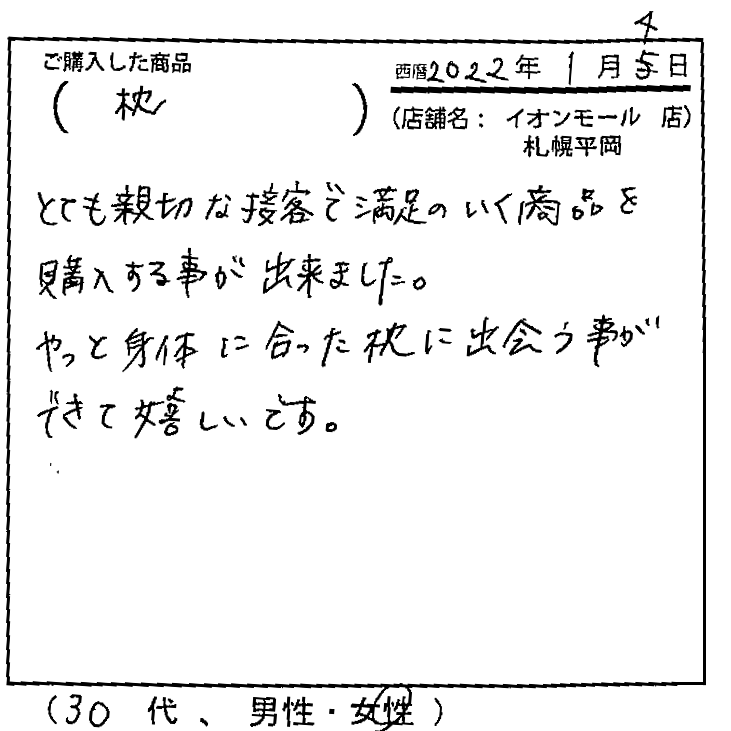 ご購入した商品
( 枕 )
西暦2022年 1月4日
(店舗名: イオンモール 店)
札幌平岡
とても親切な接客で満足のいく商品を
購入する事が出来ました。
やっと身体に合った枕に出会う事が
できて嬉しいです。
(30 代、 男性・女性)